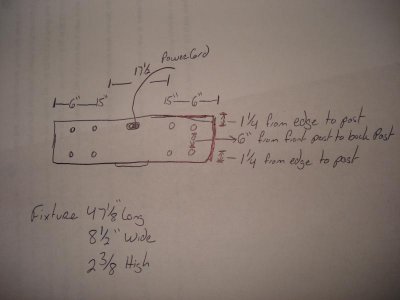 PowerCord
17 1/2
6" 15"
15" 6"
1 1/4 from edge to post
6" from front post to back Post
1 1/4 from edge to post
Fixture 47 1/8" Long
8 1/2" Wide
2 3/8 High